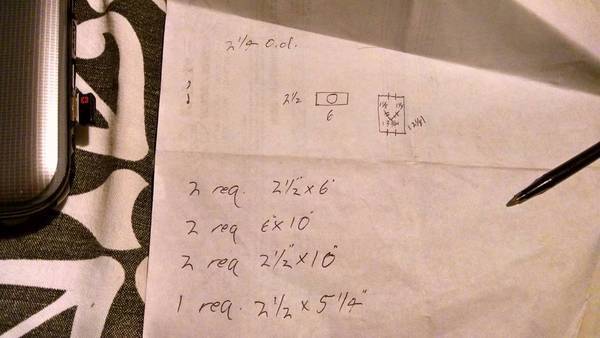 2 1/4 o.d.
2 1/2
6
2 req. 2 1/2" x 6"
2 req 6" x 10"
2 req 2 1/2" x 10"
1 req. 2 1/2 x 5 1/4"